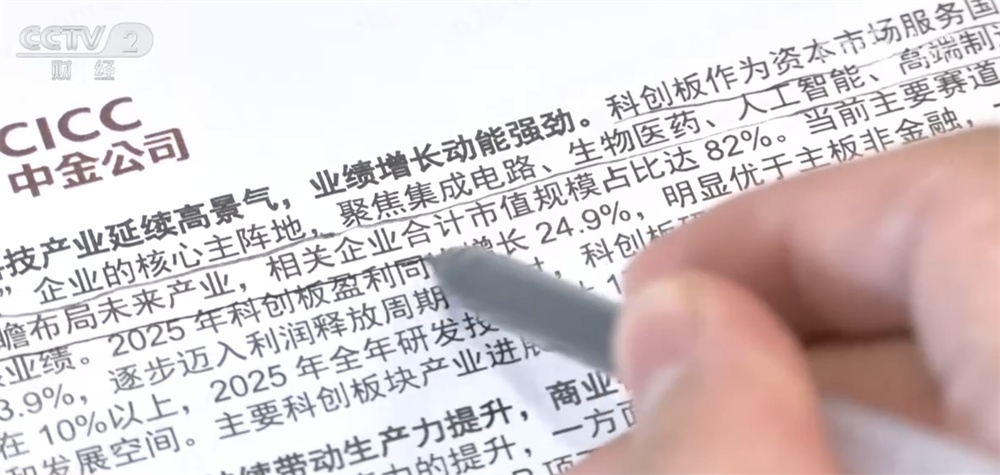 CCTV 2
财经
CICC
中金公司
技产业延续高景气，业绩增长动能强劲。科创板作为资本市场服务国
企业的核心主阵地，聚焦集成电路、生物医药、人工智能、高端制造
瞻布局未来产业，相关企业合计市值规模占比达 82%。当前主要赛道
业绩。2025 年科创板盈利同 增长 24.9%，明显优于主板非金融，
3.9%，逐步迈入利润释放周期 科创板研
在 10%以上，2025 年全年研发技
和发展空间。主要科创板块产业进展
续带动生产力提升，商业
力的提升，一方面